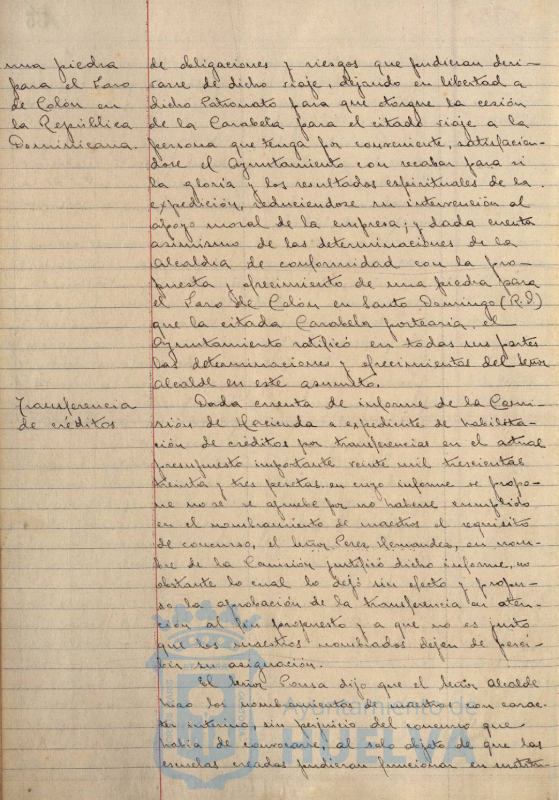 una piedra
para el Faro
de Colón en
la República
Dominicana.
de obligaciones y riesgos que pudieran deri-
varse de dicho viaje, dejando en libertad a
dicho Patronato para que otorgue la cesión
de la Carabela para el citado viaje a la
persona que tenga por conveniente, satisfacien-
dose el Ayuntamiento con recabar para si
la gloria y los resultados espirituales de la
expedición, reduciendose su intervención al
apoyo moral de la empresa; y dada cuenta
asimismo de las determinaciones de la
Alcaldia de conformidad con la pro-
puesta y ofrecimiento de una piedra para
el Faro de Colón en Santo Domingo (R.D)
que la citada Carabela portearia, el
Ayuntamiento ratificó en todas sus partes
las determinaciones y ofrecimientos del Señor
Alcalde en este asunto.
Transferencia
de créditos
Dada cuenta de informe de la Comi-
sión de Hacienda a expediente de habilita-
ción de créditos por transferencias en el actual
presupuesto importante veinte mil trescientas
treinta y tres pesetas, en cuyo informe se propo-
ne no se se apruebe por no haberse cumplido
en el nombramiento de maestros el requisito
de concurso, el Señor Perez Hernandez, en nom-
bre de la Comisión justificó dicho informe, no
obstante lo cual lo dejó sin efecto y propu-
so la aprobación de la transferencia en aten-
ción al fin propuesto y a que no es justo
que los maestros nombrados dejen de perci-
bir su asignación.
El Señor Ponsa dijo que el Señor Alcalde
hizo los nombramientos de maestros con carac-
ter interino, sin perjuicio del concurso que
había de convocarse, al solo objeto de que las
escuelas creadas pudieran funcionar en
Ayuntamiento de
HUELVA